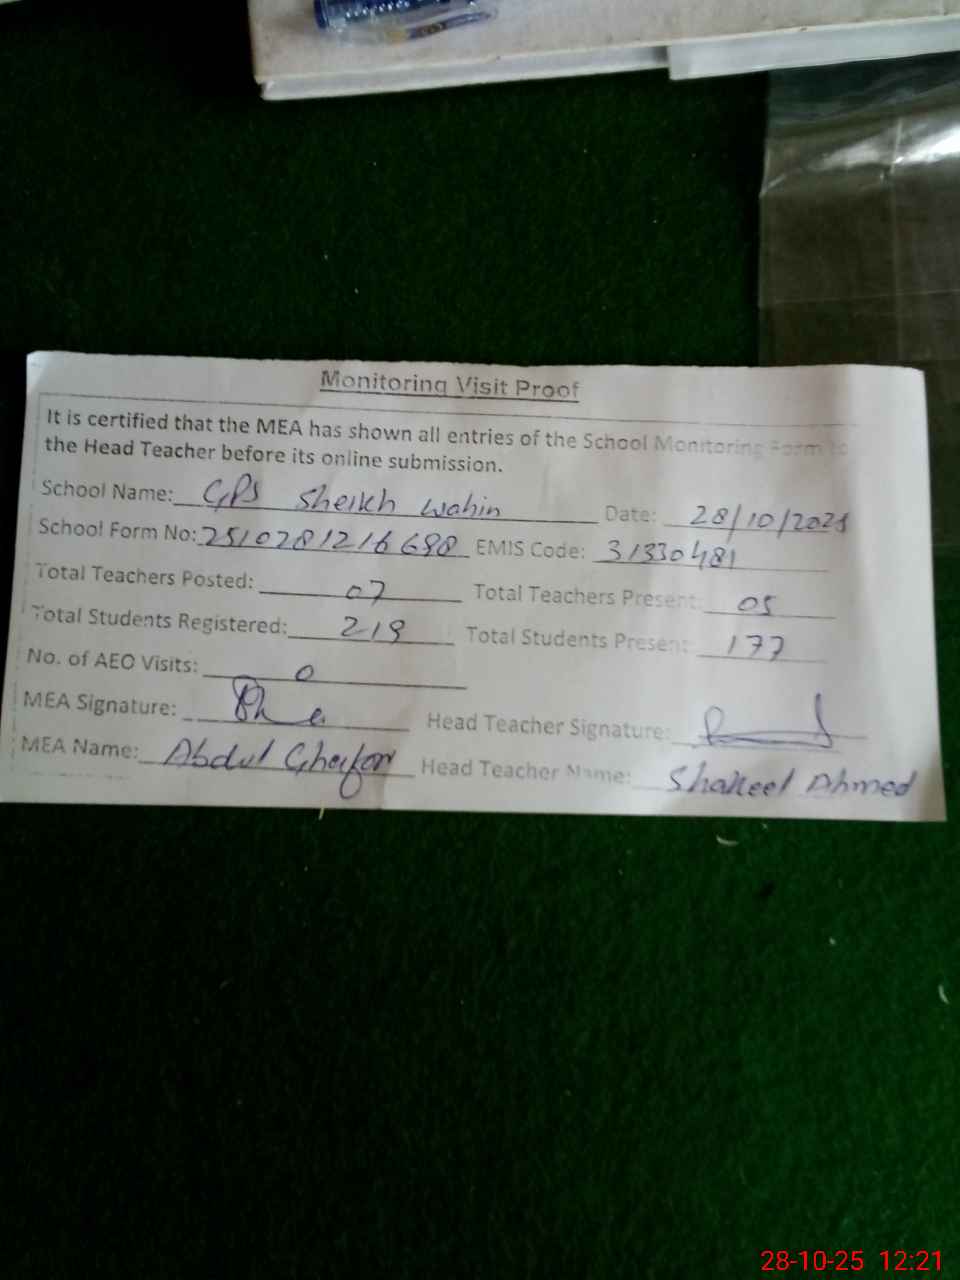 Monitoring Visit Proof
It is certified that the MEA has shown all entries of the School Monitoring Form to
the Head Teacher before its online submission.
School Name: GPS Sheikh wahin Date: 28/10/2025
School Form No: 2510281216698 EMIS Code: 31330481
Total Teachers Posted: 07 Total Teachers Present: 05
Total Students Registered: 219 Total Students Present: 177
No. of AEO Visits: 0
MEA Signature: Head Teacher Signature:
MEA Name: Abdul Ghaffar Head Teacher Name: Shakeel Ahmed
28-10-25 12:21